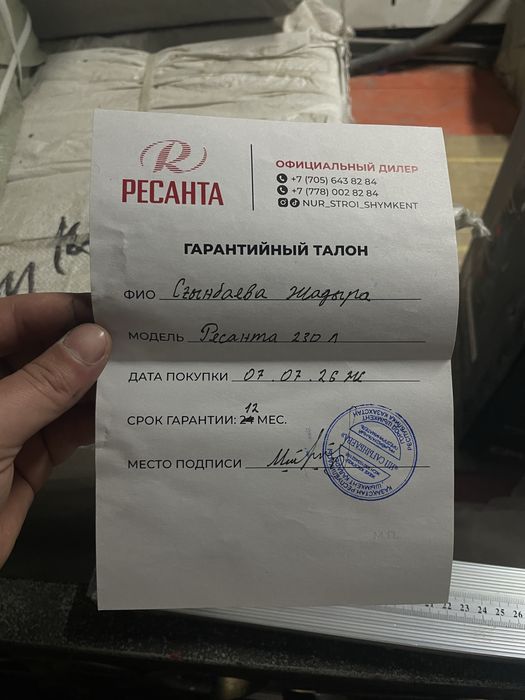 РЕСАНТА
ОФИЦИАЛЬНЫЙ ДИЛЕР
+7 (705) 643 82 84
+7 (778) 002 82 84
NUR_STROI_SHYMKENT
ГАРАНТИЙНЫЙ ТАЛОН
ФИО Сғынбаева Жадыра
МОДЕЛЬ Ресанта 230 л
ДАТА ПОКУПКИ 07.07.26 ж
СРОК ГАРАНТИИ: 12 МЕС.
МЕСТО ПОДПИСИ
РЕСПУБЛИКА КАЗАХСТАН
22 23 24 25 26